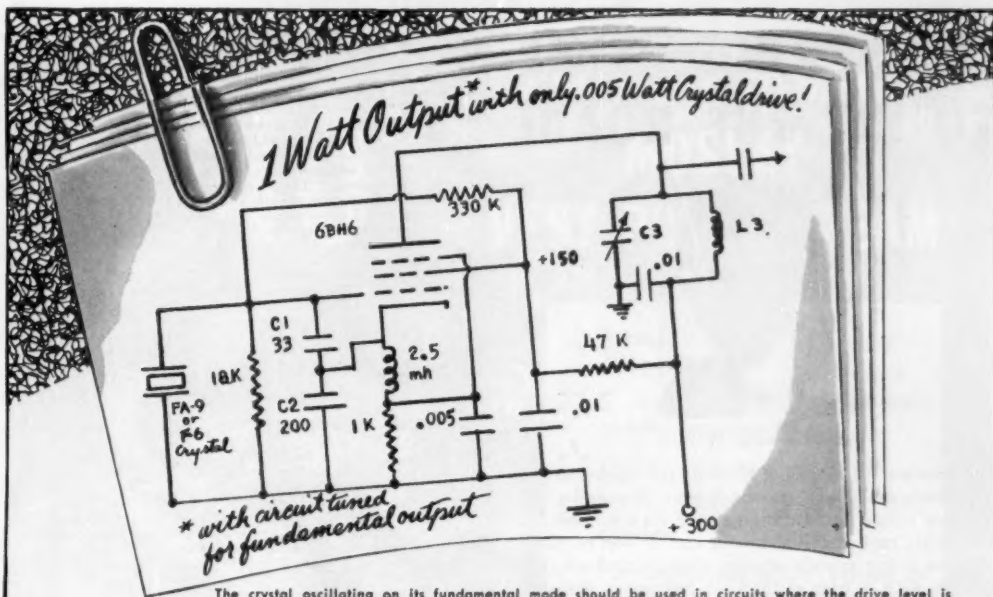 1 Watt Output* with only .005 Watt Crystal drive!
330 K
6BH6
C3
L3.
+150
.01
C1
33
2.5
mh
47 K
18K
C2
200
1K
.005
.01
FA-9
or
F6
Crystal
* with circuit tuned
for fundamental output
+300
The crystal oscillating on its fundamental mode should be used in circuits where the drive level is